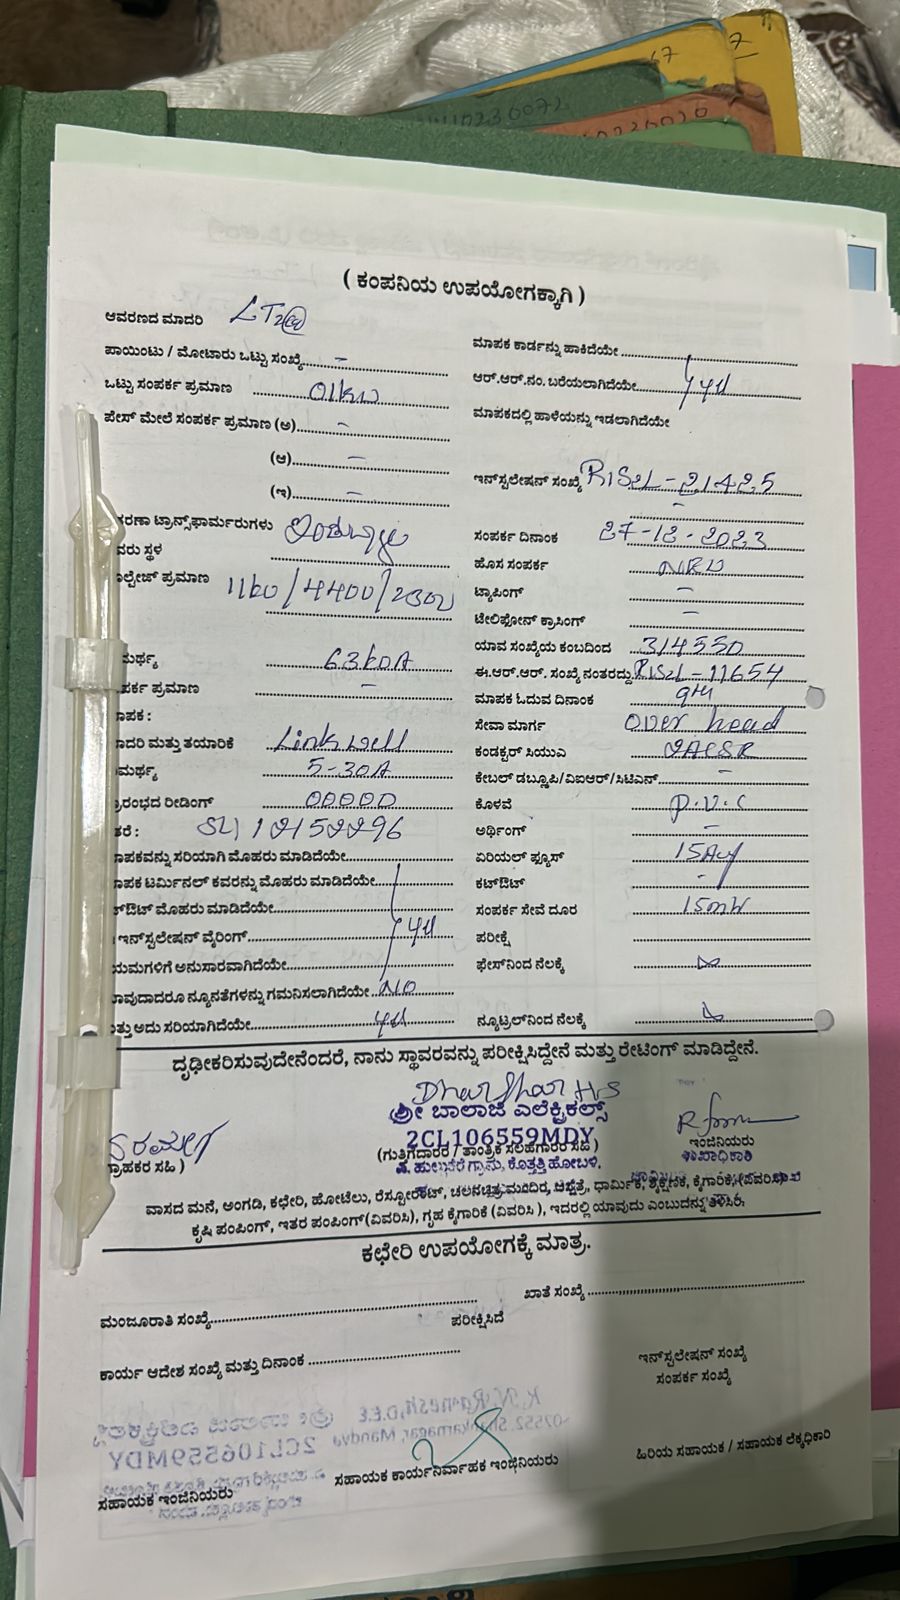 67
7
10230072
( ಕಂಪನಿಯ ಉಪಯೋಗಕ್ಕಾಗಿ )
ಆವರಣದ ಮಾದರಿ LT2(a)
ಪಾಯಿಂಟು / ಮೋಟಾರು ಒಟ್ಟು ಸಂಖ್ಯೆ -
ಒಟ್ಟು ಸಂಪರ್ಕ ಪ್ರಮಾಣ 01kw
ಪೇಸ್ ಮೇಲೆ ಸಂಪರ್ಕ ಪ್ರಮಾಣ (ಅ) -
(ಆ) -
(ಇ) -
ಕರಣಾ ಟ್ರಾನ್ಸ್‌ಫಾರ್ಮರುಗಳು
ವರು ಸ್ಥಳ
ಾಲ್ಟೇಜ್ ಪ್ರಮಾಣ 11kv/4400/230V
ಮರ್ಥ್ಯ 63kVA
ಪರ್ಕ ಪ್ರಮಾಣ -
ಾಪಕ :
ಾದರಿ ಮತ್ತು ತಯಾರಿಕೆ Linkwell
ಮರ್ಥ್ಯ 5-30A
್ರಾರಂಭದ ರೀಡಿಂಗ್ 00000
ತರೆ : SL) 12152296
ಾಪಕವನ್ನು ಸರಿಯಾಗಿ ಮೊಹರು ಮಾಡಿದೆಯೇ
ಾಪಕ ಟರ್ಮಿನಲ್ ಕವರನ್ನು ಮೊಹರು ಮಾಡಿದೆಯೇ
ಟ್‌ಔಟ್ ಮೊಹರು ಮಾಡಿದೆಯೇ
ಇನ್‌ಸ್ಟಲೇಷನ್ ವೈರಿಂಗ್
ಯಮಗಳಿಗೆ ಅನುಸಾರವಾಗಿದೆಯೇ
ಾವುದಾದರೂ ನ್ಯೂನತೆಗಳನ್ನು ಗಮನಿಸಲಾಗಿದೆಯೇ NO
ತ್ತು ಅದು ಸರಿಯಾಗಿದೆಯೇ
ಮಾಪಕ ಕಾರ್ಡನ್ನು ಹಾಕಿದೆಯೇ
ಆರ್.ಆರ್.ನಂ. ಬರೆಯಲಾಗಿದೆಯೇ
ಮಾಪಕದಲ್ಲಿ ಹಾಳೆಯನ್ನು ಇಡಲಾಗಿದೆಯೇ
ಇನ್‌ಸ್ಟಲೇಷನ್ ಸಂಖ್ಯೆ RIS2L-21425
ಸಂಪರ್ಕ ದಿನಾಂಕ 27-12-2023
ಹೊಸ ಸಂಪರ್ಕ
ಟ್ಯಾಪಿಂಗ್ -
ಟೆಲಿಫೋನ್ ಕ್ರಾಸಿಂಗ್ -
ಯಾವ ಸಂಖ್ಯೆಯ ಕಂಬದಿಂದ 314550
ಈ.ಆರ್.ಆರ್. ಸಂಖ್ಯೆ ನಂತರದ್ದು RIS2L-11654
ಮಾಪಕ ಓದುವ ದಿನಾಂಕ 9th
ಸೇವಾ ಮಾರ್ಗ over head
ಕಂಡಕ್ಟರ್ ಸಿಯುಎ
ಕೇಬಲ್ ಡಬ್ಲ್ಯೂಪಿ/ವಿಐಆರ್/ಸಿಟಿಎನ್ -
ಕೊಳವೆ P.V.C
ಅರ್ಥಿಂಗ್ -
ಏರಿಯಲ್ ಫ್ಯೂಸ್
ಕಟ್‌ಔಟ್ -
ಸಂಪರ್ಕ ಸೇವೆ ದೂರ
ಪರೀಕ್ಷೆ
ಫೇಸ್‌ನಿಂದ ನೆಲಕ್ಕೆ
ನ್ಯೂಟ್ರಲ್‌ನಿಂದ ನೆಲಕ್ಕೆ
ದೃಢೀಕರಿಸುವುದೇನೆಂದರೆ, ನಾನು ಸ್ಥಾವರವನ್ನು ಪರೀಕ್ಷಿಸಿದ್ದೇನೆ ಮತ್ತು ರೇಟಿಂಗ್ ಮಾಡಿದ್ದೇನೆ.
ಶ್ರೀ ಬಾಲಾಜಿ ಎಲೆಕ್ಟ್ರಿಕಲ್ಸ್
2CL106559MDY
(ಗುತ್ತಿಗೆದಾರರ / ತಾಂತ್ರಿಕ ಸಲಹೆಗಾರರ ಸಹಿ )
ಗ್ರಾಮ, ಕೊತ್ತತ್ತಿ ಹೋಬಳಿ.
್ರಾಹಕರ ಸಹಿ )
ಇಂಜಿನಿಯರು
ಶಾಖಾಧಿಕಾರಿ
ವಾಸದ ಮನೆ, ಅಂಗಡಿ, ಕಛೇರಿ, ಹೋಟೆಲು, ರೆಸ್ಟೋರೆಂಟ್, ಚಲನಚಿತ್ರ ಮಂದಿರ, ಆಸ್ಪತ್ರೆ, ಧಾರ್ಮಿಕ, ಶೈಕ್ಷಣಿಕ, ಕೈಗಾರಿಕೆ,
ಕೃಷಿ ಪಂಪಿಂಗ್, ಇತರ ಪಂಪಿಂಗ್(ವಿವರಿಸಿ), ಗೃಹ ಕೈಗಾರಿಕೆ (ವಿವರಿಸಿ ), ಇದರಲ್ಲಿ ಯಾವುದು ಎಂಬುದನ್ನು ತಿಳಿಸಿರಿ.
ಕಛೇರಿ ಉಪಯೋಗಕ್ಕೆ ಮಾತ್ರ.
ಮಂಜೂರಾತಿ ಸಂಖ್ಯೆ
ಖಾತೆ ಸಂಖ್ಯೆ
ಪರೀಕ್ಷಿಸಿದೆ
ಕಾರ್ಯ ಆದೇಶ ಸಂಖ್ಯೆ ಮತ್ತು ದಿನಾಂಕ
ಇನ್‌ಸ್ಟಲೇಷನ್ ಸಂಖ್ಯೆ
ಸಂಪರ್ಕ ಸಂಖ್ಯೆ
ಸಹಾಯಕ ಇಂಜಿನಿಯರು
ಸಹಾಯಕ ಕಾರ್ಯನಿರ್ವಾಹಕ ಇಂಜಿನಿಯರು
ಹಿರಿಯ ಸಹಾಯಕ / ಸಹಾಯಕ ಲೆಕ್ಕಾಧಿಕಾರಿ